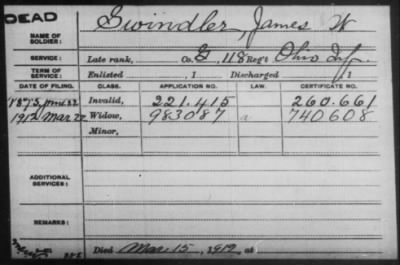 DEAD
NAME OF SOLDIER: Swindler, James W
SERVICE: Late rank, Co. G, 118 Reg't Ohio Inf.
TERM OF SERVICE: Enlisted , 1 Discharged , 1
DATE OF FILING. CLASS. APPLICATION NO. LAW. CERTIFICATE NO.
Invalid, 221.415 260.661
1912 Mar 22 Widow, 983087 a 740608
Minor,
ADDITIONAL SERVICES:
REMARKS:
Died Mar 15, 1912, at